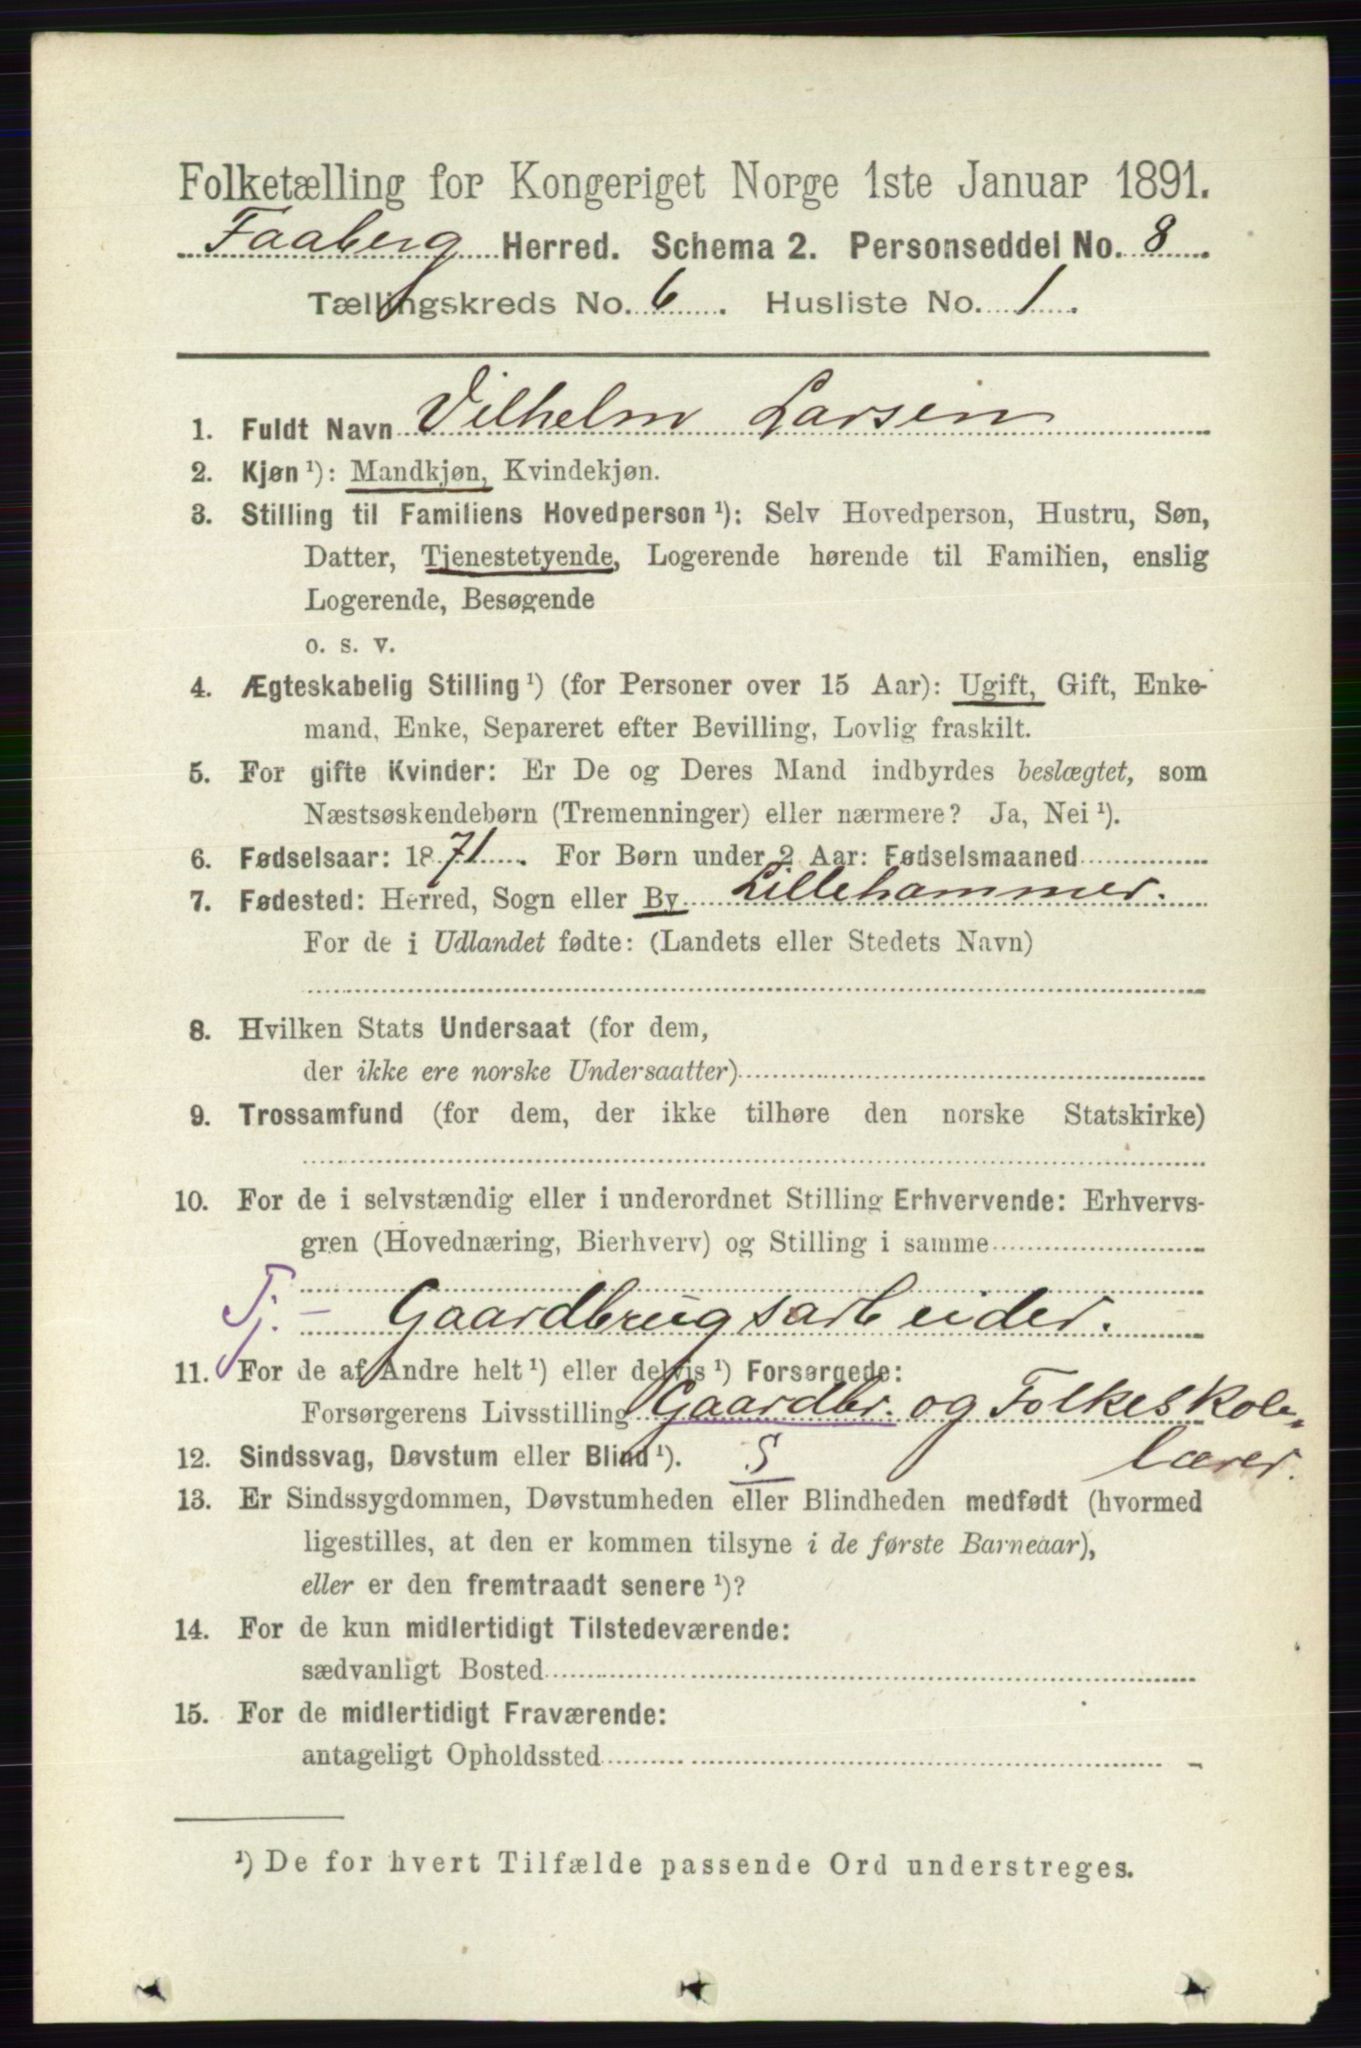 Folketælling for Kongeriget Norge 1ste Januar 1891.
Faaberg Herred. Schema 2. Personseddel No. 8
Tællingskreds No. 6. Husliste No. 1.
1. Fuldt Navn Vilhelm Larsen
2. Kjøn ¹): Mandkjøn, Kvindekjøn.
3. Stilling til Familiens Hovedperson ¹): Selv Hovedperson, Hustru, Søn,
Datter, Tjenestetyende, Logerende hørende til Familien, enslig
Logerende, Besøgende
o. s. v.
4. Ægteskabelig Stilling ¹) (for Personer over 15 Aar): Ugift, Gift, Enke-
mand, Enke, Separeret efter Bevilling, Lovlig fraskilt.
5. For gifte Kvinder: Er De og Deres Mand indbyrdes beslægtet, som
Næstsøskendebørn (Tremenninger) eller nærmere? Ja, Nei ¹).
6. Fødselsaar: 1871. For Børn under 2 Aar: Fødselsmaaned
7. Fødested: Herred, Sogn eller By Lillehammer.
For de i Udlandet fødte: (Landets eller Stedets Navn)
8. Hvilken Stats Undersaat (for dem,
der ikke ere norske Undersaatter)
9. Trossamfund (for dem, der ikke tilhøre den norske Statskirke)
10. For de i selvstændig eller i underordnet Stilling Erhvervende: Erhvervs-
gren (Hovednæring, Bierhverv) og Stilling i samme
Tj. - Gaardbrugsarbeider.
11. For de af Andre helt ¹) eller delvis ¹) Forsørgede:
Forsørgerens Livsstilling Gaardbr. og Folkeskole-
lærer.
12. Sindssvag, Døvstum eller Blind ¹). S
13. Er Sindssygdommen, Døvstumheden eller Blindheden medfødt (hvormed
ligestilles, at den er kommen tilsyne i de første Barneaar),
eller er den fremtraadt senere ¹)?
14. For de kun midlertidigt Tilstedeværende:
sædvanligt Bosted
15. For de midlertidigt Fraværende:
antageligt Opholdssted
¹) De for hvert Tilfælde passende Ord understreges.